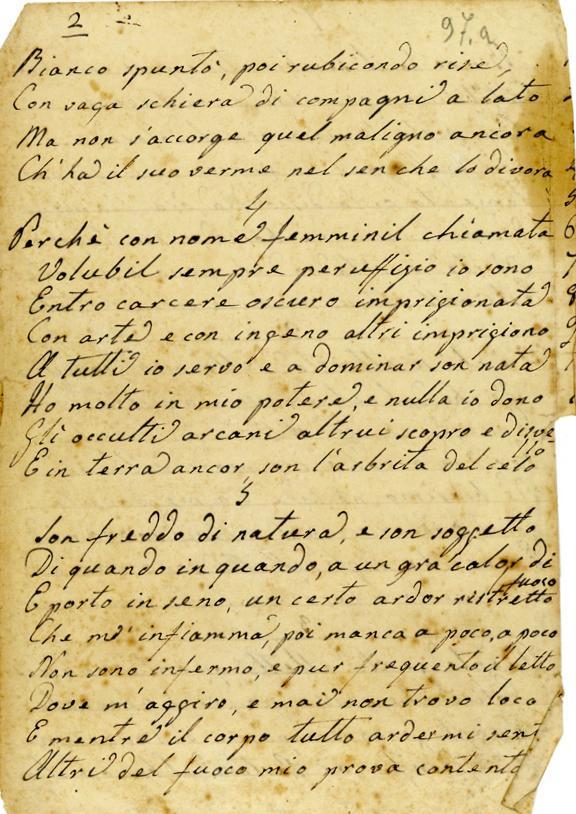 2
97.a
Bianco spuntò, poi rubicondo rise,
Con vaga schiera di compagni a lato
Ma non s'accorge quel maligno ancora
Ch'ha il suo verme nel sen che lo divora
4
Perchè con nome femminil chiamata
Volubil sempre per uffizio io sono
Entro carcere oscuro imprigionata
Con arte e con ingeno altri imprigiono
A tutti io servo e a dominar son nata
Ho molto in mio potere, e nulla io dono
Gli occulti arcani altrui scopro e disve
lo
E in terra ancor, son l'arbrita del celo
5
Son freddo di natura, e son soggetto
Di quando in quando, a un gra calor di
fuoco
E porto in seno, un certo ardor ristretto
Che m'infiamma, poi manca a poco, a poco
Non sono infermo, e pur frequento il letto
Dove m'aggiro, e mai non trovo loco
E mentre il corpo tutto ardermi sent
Altri del fuoco mio prova contento